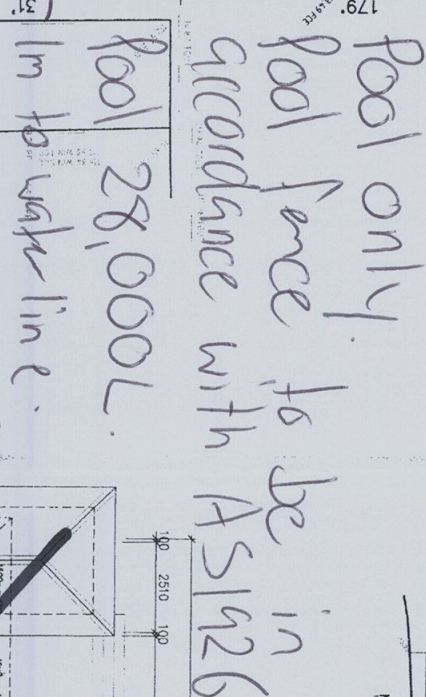 Pool only.
Pool fence to be in
accordance with AS1926
Pool 28,000L.
1m to waterline.
179°
31°
100
2510
100